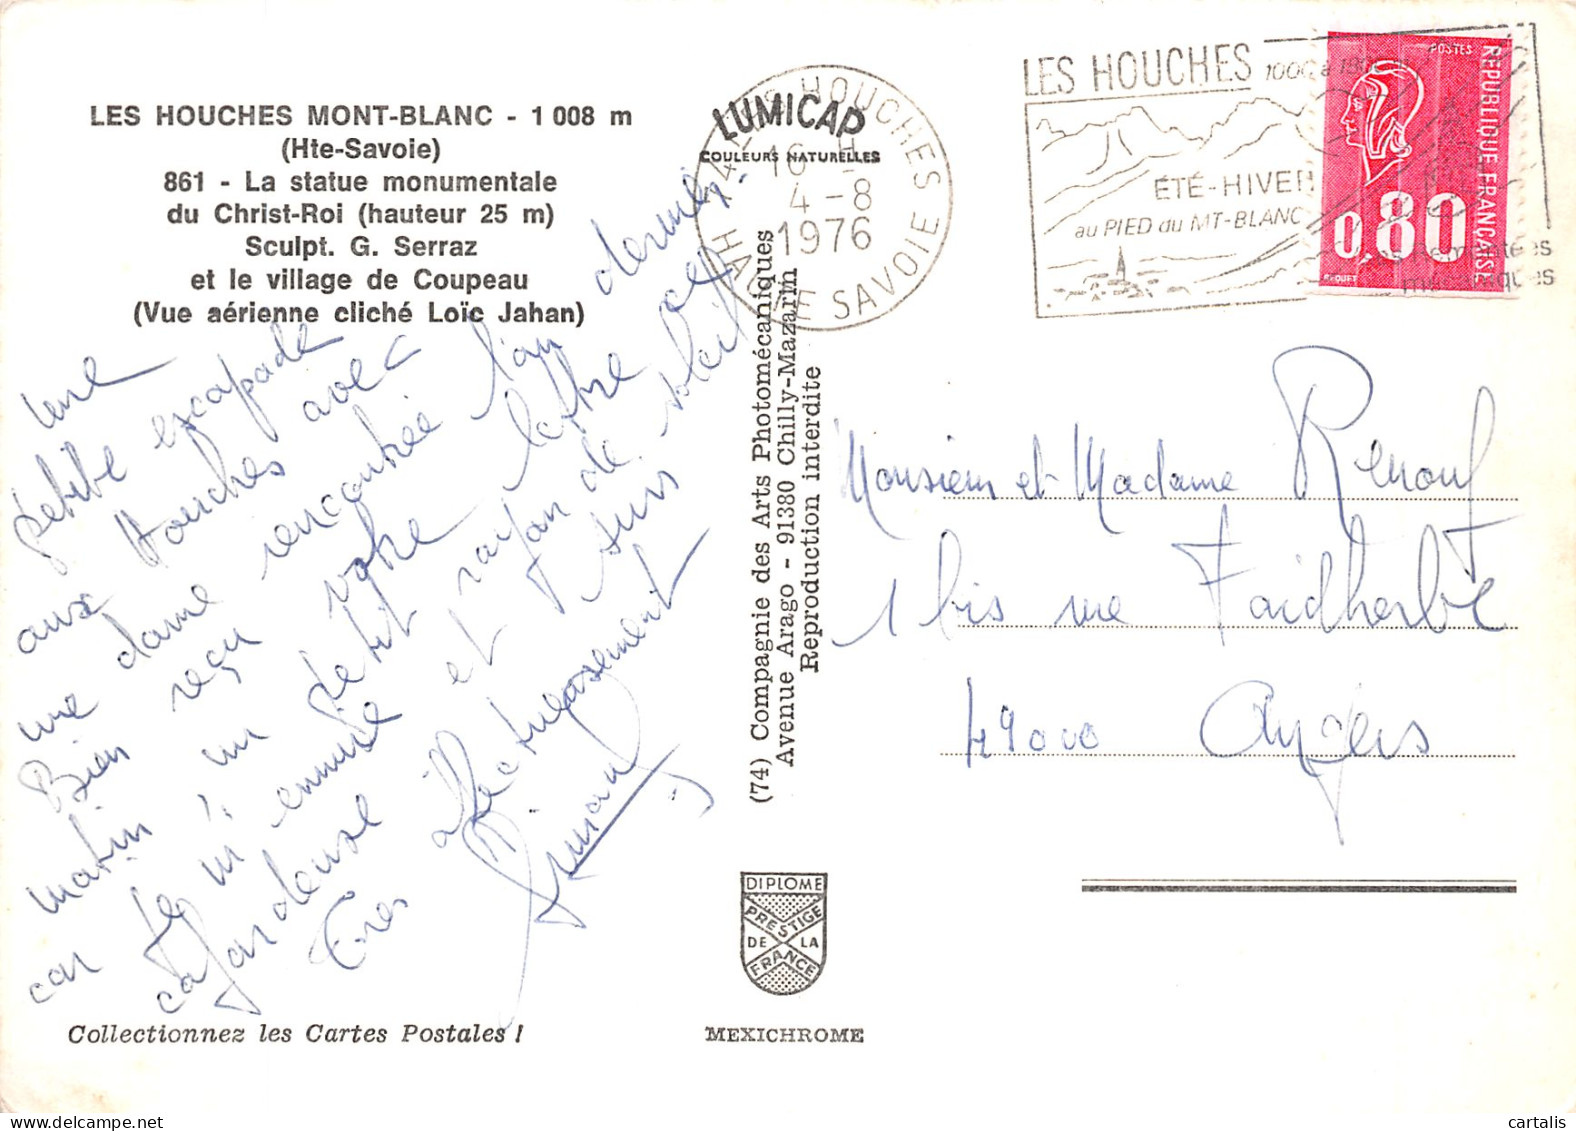 LES HOUCHES MONT-BLANC - 1 008 m
(Hte-Savoie)
861 - La statue monumentale
du Christ-Roi (hauteur 25 m)
Sculpt. G. Serraz
et le village de Coupeau
(Vue aérienne cliché Loïc Jahan)
Une
petite escapade
aux Houches avec
une dame rencontrée l'an dernier.
Bien reçu votre lettre ce
matin, un petit rayon de soleil
car je m'ennuie et suis
cafardeuse
Très affectueusement
Collectionnez les Cartes Postales !
LUMICAP
COULEURS NATURELLES
74 LES HOUCHES
16 H
4 - 8
1976
HAUTE SAVOIE
(74) Compagnie des Arts Photomécaniques
Avenue Arago - 91380 Chilly-Mazarin
Reproduction interdite
DIPLOME
PRESTIGE
DE LA
FRANCE
MEXICHROME
LES HOUCHES
1000 à
ÉTÉ - HIVER
au PIED du MT-BLANC
POSTES
REPUBLIQUE FRANÇAISE
0,80
Monsieur et Madame Renouf
1 bis rue Faidherbe
49000 Angers
cartalis